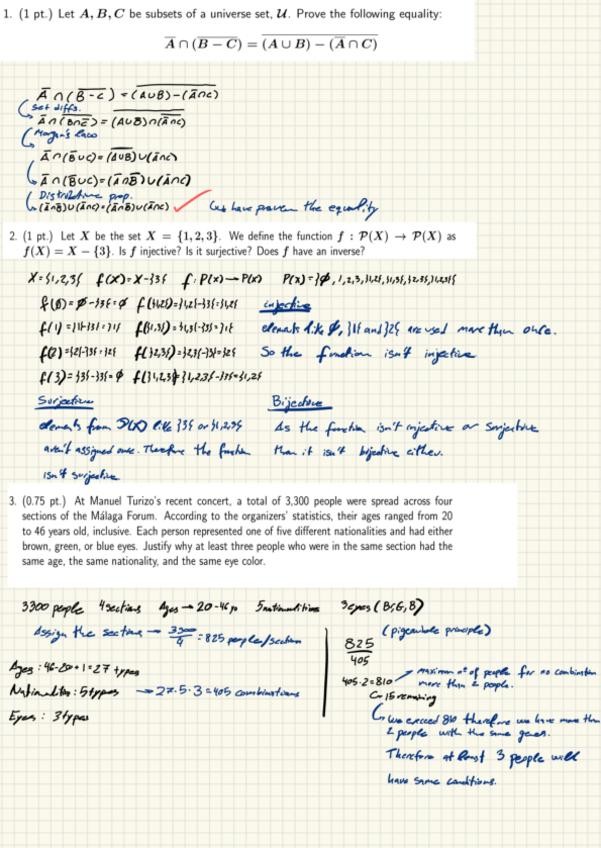 1. (1 pt.) Let A, B, C be subsets of a universe set, U. Prove the following equality:
A̅ ∩ (B̅ ̅-̅ ̅C̅) = (̅A̅ ̅∪̅ ̅B̅)̅ ̅-̅ ̅(̅A̅ ̅∩̅ ̅C̅)̅
Ā∩(B-C) = (A∪B)-(Ā∩C)
Set diffs.
Ā∩(B∩C̄) = (A∪B)∩(Ā∩C)
Morgan's laws
Ā∩(B̄∪C)=(A∪B)∪(Ā∩C)
Ā∩(B̄∪C)=(Ā∩B̄)∪(Ā∩C)
Distributive prop.
(Ā∩B̄)∪(Ā∩C)=(Ā∩B̄)∪(Ā∩C) have proven the equality
2. (1 pt.) Let X be the set X = {1, 2, 3}. We define the function f : P(X) → P(X) as
f(X) = X − {3}. Is f injective? Is it surjective? Does f have an inverse?
X={1,2,3} f(X)=X-{3} f:P(X)→P(X) P(X)={∅,1,2,3,{1,2},{1,3},{2,3},{1,2,3}}
f(∅)=∅-{3}=∅ f({1,2})={1,2}-{3}={1,2} injective
f(1)={1}-{3}={1} f({1,3})={1,3}-{3}={1} elements like ∅, {1} and {2} are used more than once.
f(2)={2}-{3}={2} f({2,3})={2,3}-{3}={2} So the function isn't injective
f(3)={3}-{3}=∅ f({1,2,3})={1,2,3}-{3}={1,2}
Surjective Bijective
elements from P(X) like {3} or {1,2,3} As the function isn't injective or surjective
aren't assigned once. Therefore the function than it isn't bijective either.
isn't surjective
3. (0.75 pt.) At Manuel Turizo's recent concert, a total of 3,300 people were spread across four
sections of the Málaga Forum. According to the organizers' statistics, their ages ranged from 20
to 46 years old, inclusive. Each person represented one of five different nationalities and had either
brown, green, or blue eyes. Justify why at least three people who were in the same section had the
same age, the same nationality, and the same eye color.
3300 people 4 sections Ages → 20-46 yo 5 nationalities 3 eyes (B,G,B)
Assign the sections → 3300/4 = 825 people/section (pigeonhole principle)
825
405
Ages: 46-20+1=27 types
405·2=810 maximum nº of people for no combination
more than 2 people.
Nationalities: 5 types → 27·5·3=405 combinations
15 remaining
Eyes: 3 types
we exceed 810 therefore we have more than
2 people with the same
Therefore at least 3 people will
have same conditions.